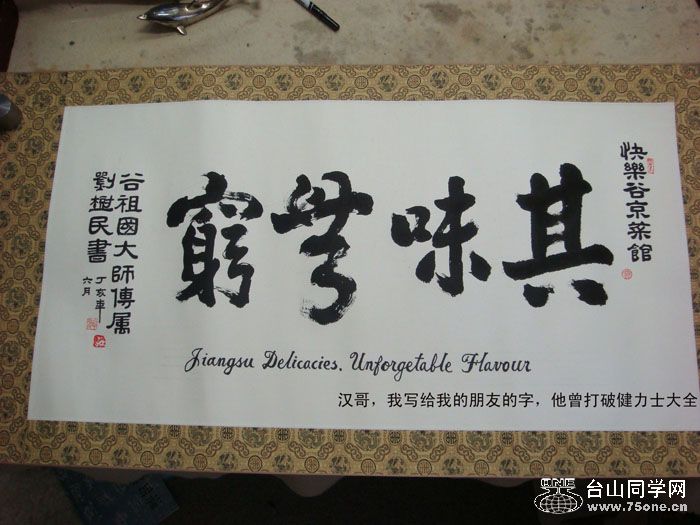 快樂谷京菜館
其味無窮
谷祖國大師傳属
劉樹民書
丁亥年
六月
Jiangsu Delicacies. Unforgetable Flavour
汉哥，我写给我的朋友的字，他曾打破健力士大全
台山同学网
www.75one.cn